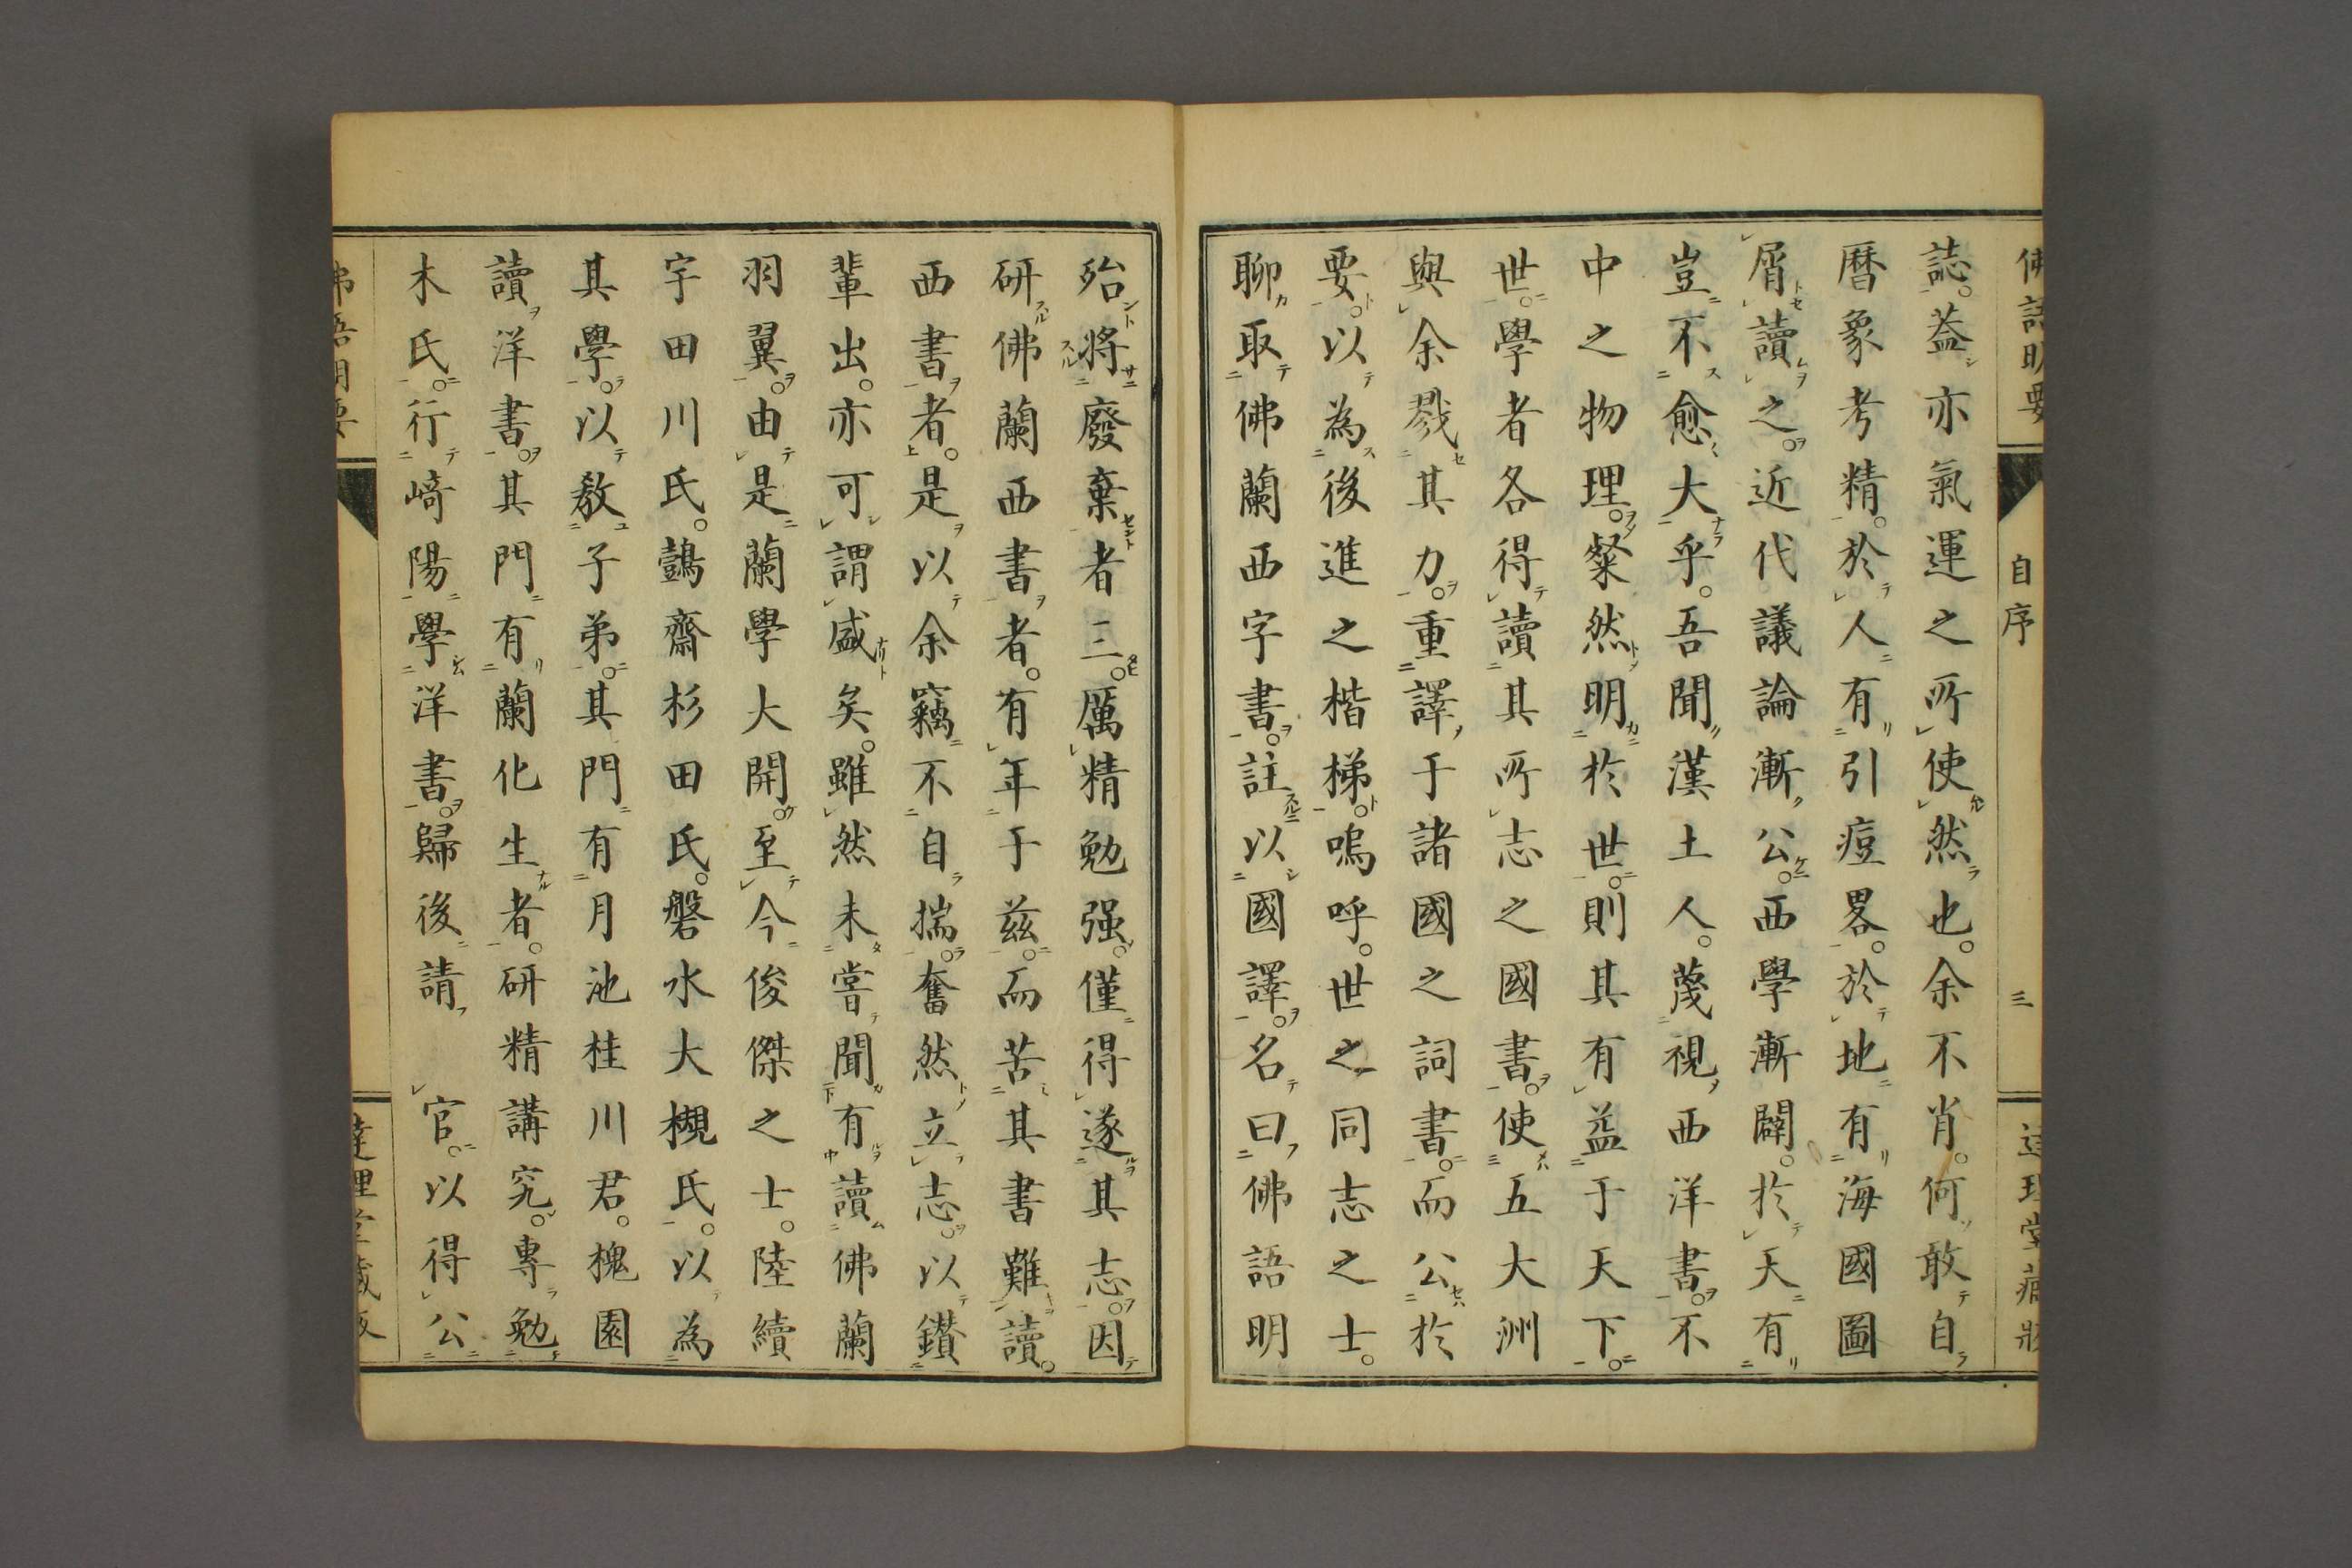 佛語明要
達理堂藏版
木氏。行崎陽學洋書。歸後請　官。以得公
讀洋書。其門有蘭化生者。研精講究。專勉
其學。以教子弟。其門有月池桂川君。槐園
宇田川氏。鷧齋杉田氏。磐水大槻氏。以為
羽翼。由是蘭學大開。至今俊傑之士。陸續
輩出。亦可謂盛矣。雖然未嘗聞有讀佛蘭
西書者。是以余竊不自揣。奮然立志。以鑚
研佛蘭西書者。有年于茲。而苦其書難讀。
殆將廢棄者三。厲精勉强。僅得遂其志。因
聊取佛蘭西字書。註以國譯。名曰佛語明
要。以為後進之楷梯。嗚呼。世之同志之士。
與余戮其力。重譯于諸國之詞書。而公於
世。學者各得讀其所志之國書。使五大洲
中之物理。粲然明於世。則其有益于天下。
豈不愈大乎。吾聞漢土人。蔑視西洋書。不
屑讀之。近代議論漸公。西學漸闢。於天有
暦象考精。於人有引痘畧。於地有海國圖
誌。蓋亦氣運之所使然也。余不肖。何敢自
佛語明要
自序
三
達理堂藏版